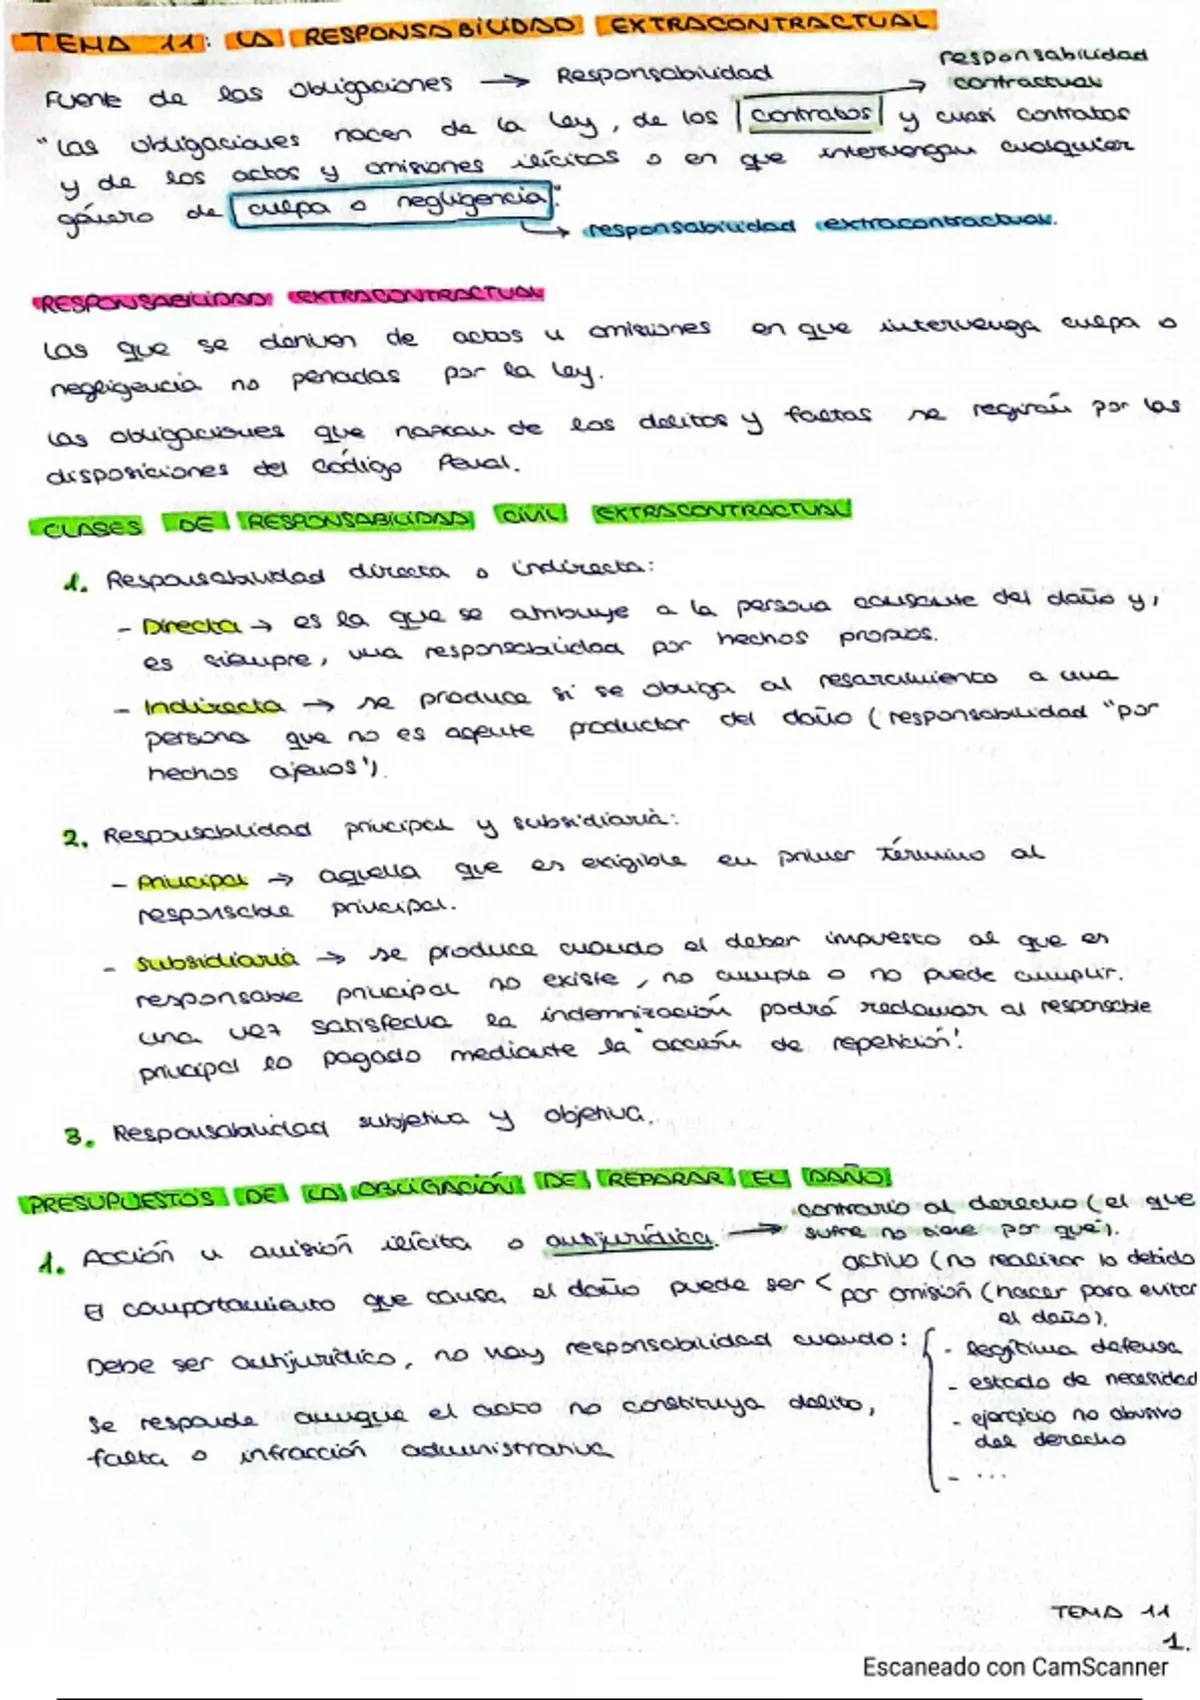 TEMA 11: LA RESPONSABILIDAD EXTRACONTRACTUAL
Fuente de las obligaciones → Responsabilidad
responsabilidad
contractual
"Las obligaciones nacen de la ley, de los contratos y cuasi contratos
y de los actos y omisiones ilícitas o en que intervengan cualquier
género de culpa o negligencia".
→ responsabilidad extracontractual.
RESPONSABILIDAD EXTRACONTRACTUAL
Las que se deriven de actos u omisiones en que intervenga culpa o
negligencia no penadas por la ley.
Las obligaciones que nazcan de los delitos y faltas se regirán por las
disposiciones del Código Penal.
CLASES DE RESPONSABILIDAD CIVIL EXTRACONTRACTUAL
1. Responsabilidad directa o indirecta:
- Directa → es la que se atribuye a la persona causante del daño y,
es siempre, una responsabilidad por hechos propios.
- Indirecta → se produce si se obliga al resarcimiento a una
persona que no es agente productor del daño (responsabilidad "por
hechos ajenos").
2. Responsabilidad principal y subsidiaria:
- Principal → aquella que es exigible en primer término al
responsable principal.
- Subsidiaria → se produce cuando el deber impuesto al que es
responsable principal no existe, no cumple o no puede cumplir.
una vez satisfecha la indemnización podrá reclamar al responsable
principal lo pagado mediante la "acción de repetición".
3. Responsabilidad subjetiva y objetiva.
PRESUPUESTOS DE LA OBLIGACIÓN DE REPARAR EL DAÑO
1. Acción u omisión ilícita o antijurídica. → contrario al derecho (el que
sufre no tiene por qué).
El comportamiento que causa el daño puede ser < activo (no realizar lo debido
por omisión (hacer para evitar
el daño).
Debe ser antijurídico, no hay responsabilidad cuando: { - legítima defensa
- estado de necesidad
- ejercicio no abusivo
del derecho
- ...
Se responde aunque el acto no constituya delito,
falta o infracción administrativa
TEMA 11
1.
Escaneado con CamScanner